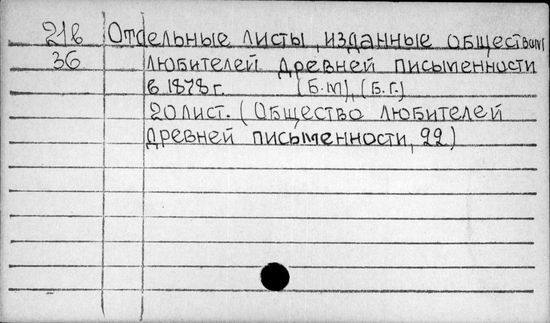 21в Отдельные листы, изданные обществом
36 любителей древней письменности
в 1878 г. (Б.м), (Б.г.)
20 лист. (Общество любителей
древней письменности, 22)